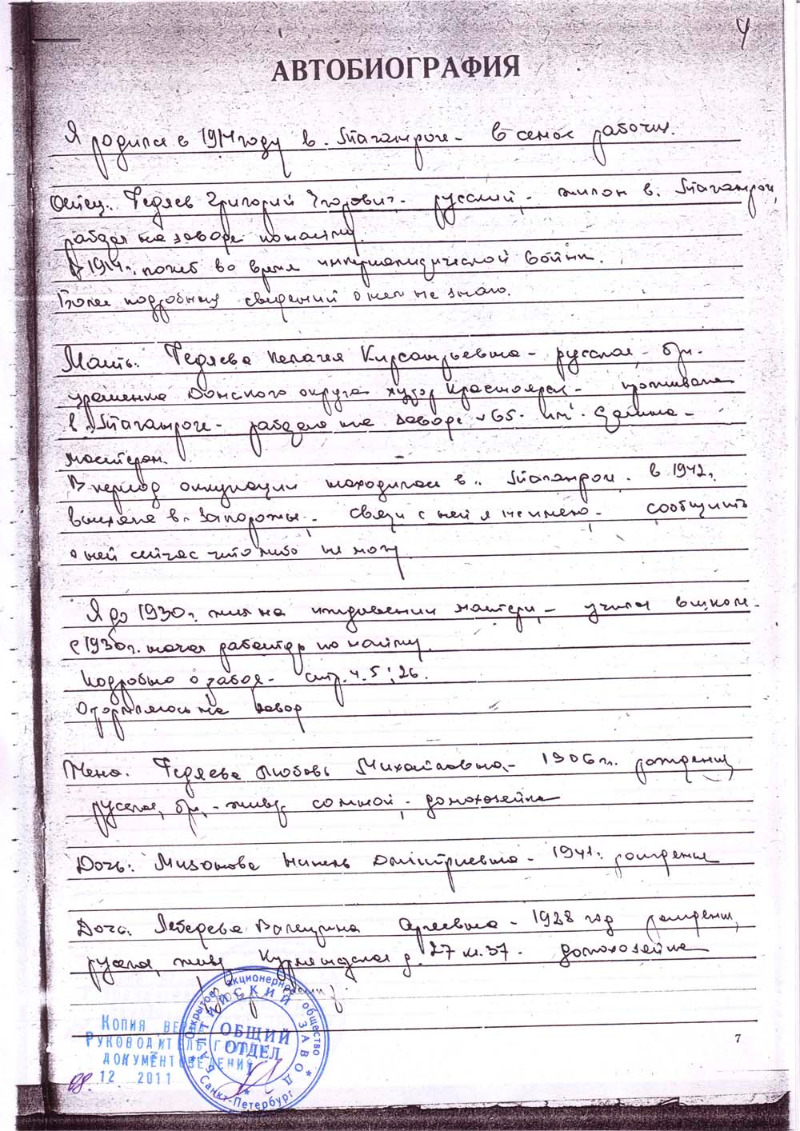 4
АВТОБИОГРАФИЯ
Я родился в 1914 году в г. Таганроге - в семье рабочих.
Отец: Федяев Григорий Егорович - русский, - жил он в г. Таганроге,
работал на заводе по найму.
В 1914 г. погиб во время империалистической войны.
Более подробных сведений о нем не знаю.
Мать: Федяева Пелагея - русская,
Донского округа хутор Красноярск - проживала
в г. Таганроге - работала на заводе №65 - им.
мастером.
В период оккупации находилась в г. Таганроге. в 1942 г.
выехала в г. Запорожье. - связи с ней я не имею - сообщить
о ней сейчас что либо не могу
Я до 1930 г. жил на иждивении матери, - учился в школе -
с 1930 г. начал работать по найму.
Подробно о - стр. 4, 5; 26.
на завод
Жена: Федяева Любовь Михайловна - 1906 г. рождения,
русская, - живу со мной, - домохозяйка
Дочь: Мизонова Нинель Дмитриевна - 1941 г. рождения
Дочь: Лебедева Валентина - 1928 год рождения,
русская, живу Курляндская д. 27 кв. 37 - домохозяйка
7
Открытое акционерное общество
БАЛТИЙСКИЙ ЗАВОД
ОБЩИЙ
ОТДЕЛ
Санкт-Петербург
КОПИЯ
РУКОВОДИТЕЛЬ
ДОКУМЕНТОВЕДЕНИЯ
08. 12 2011